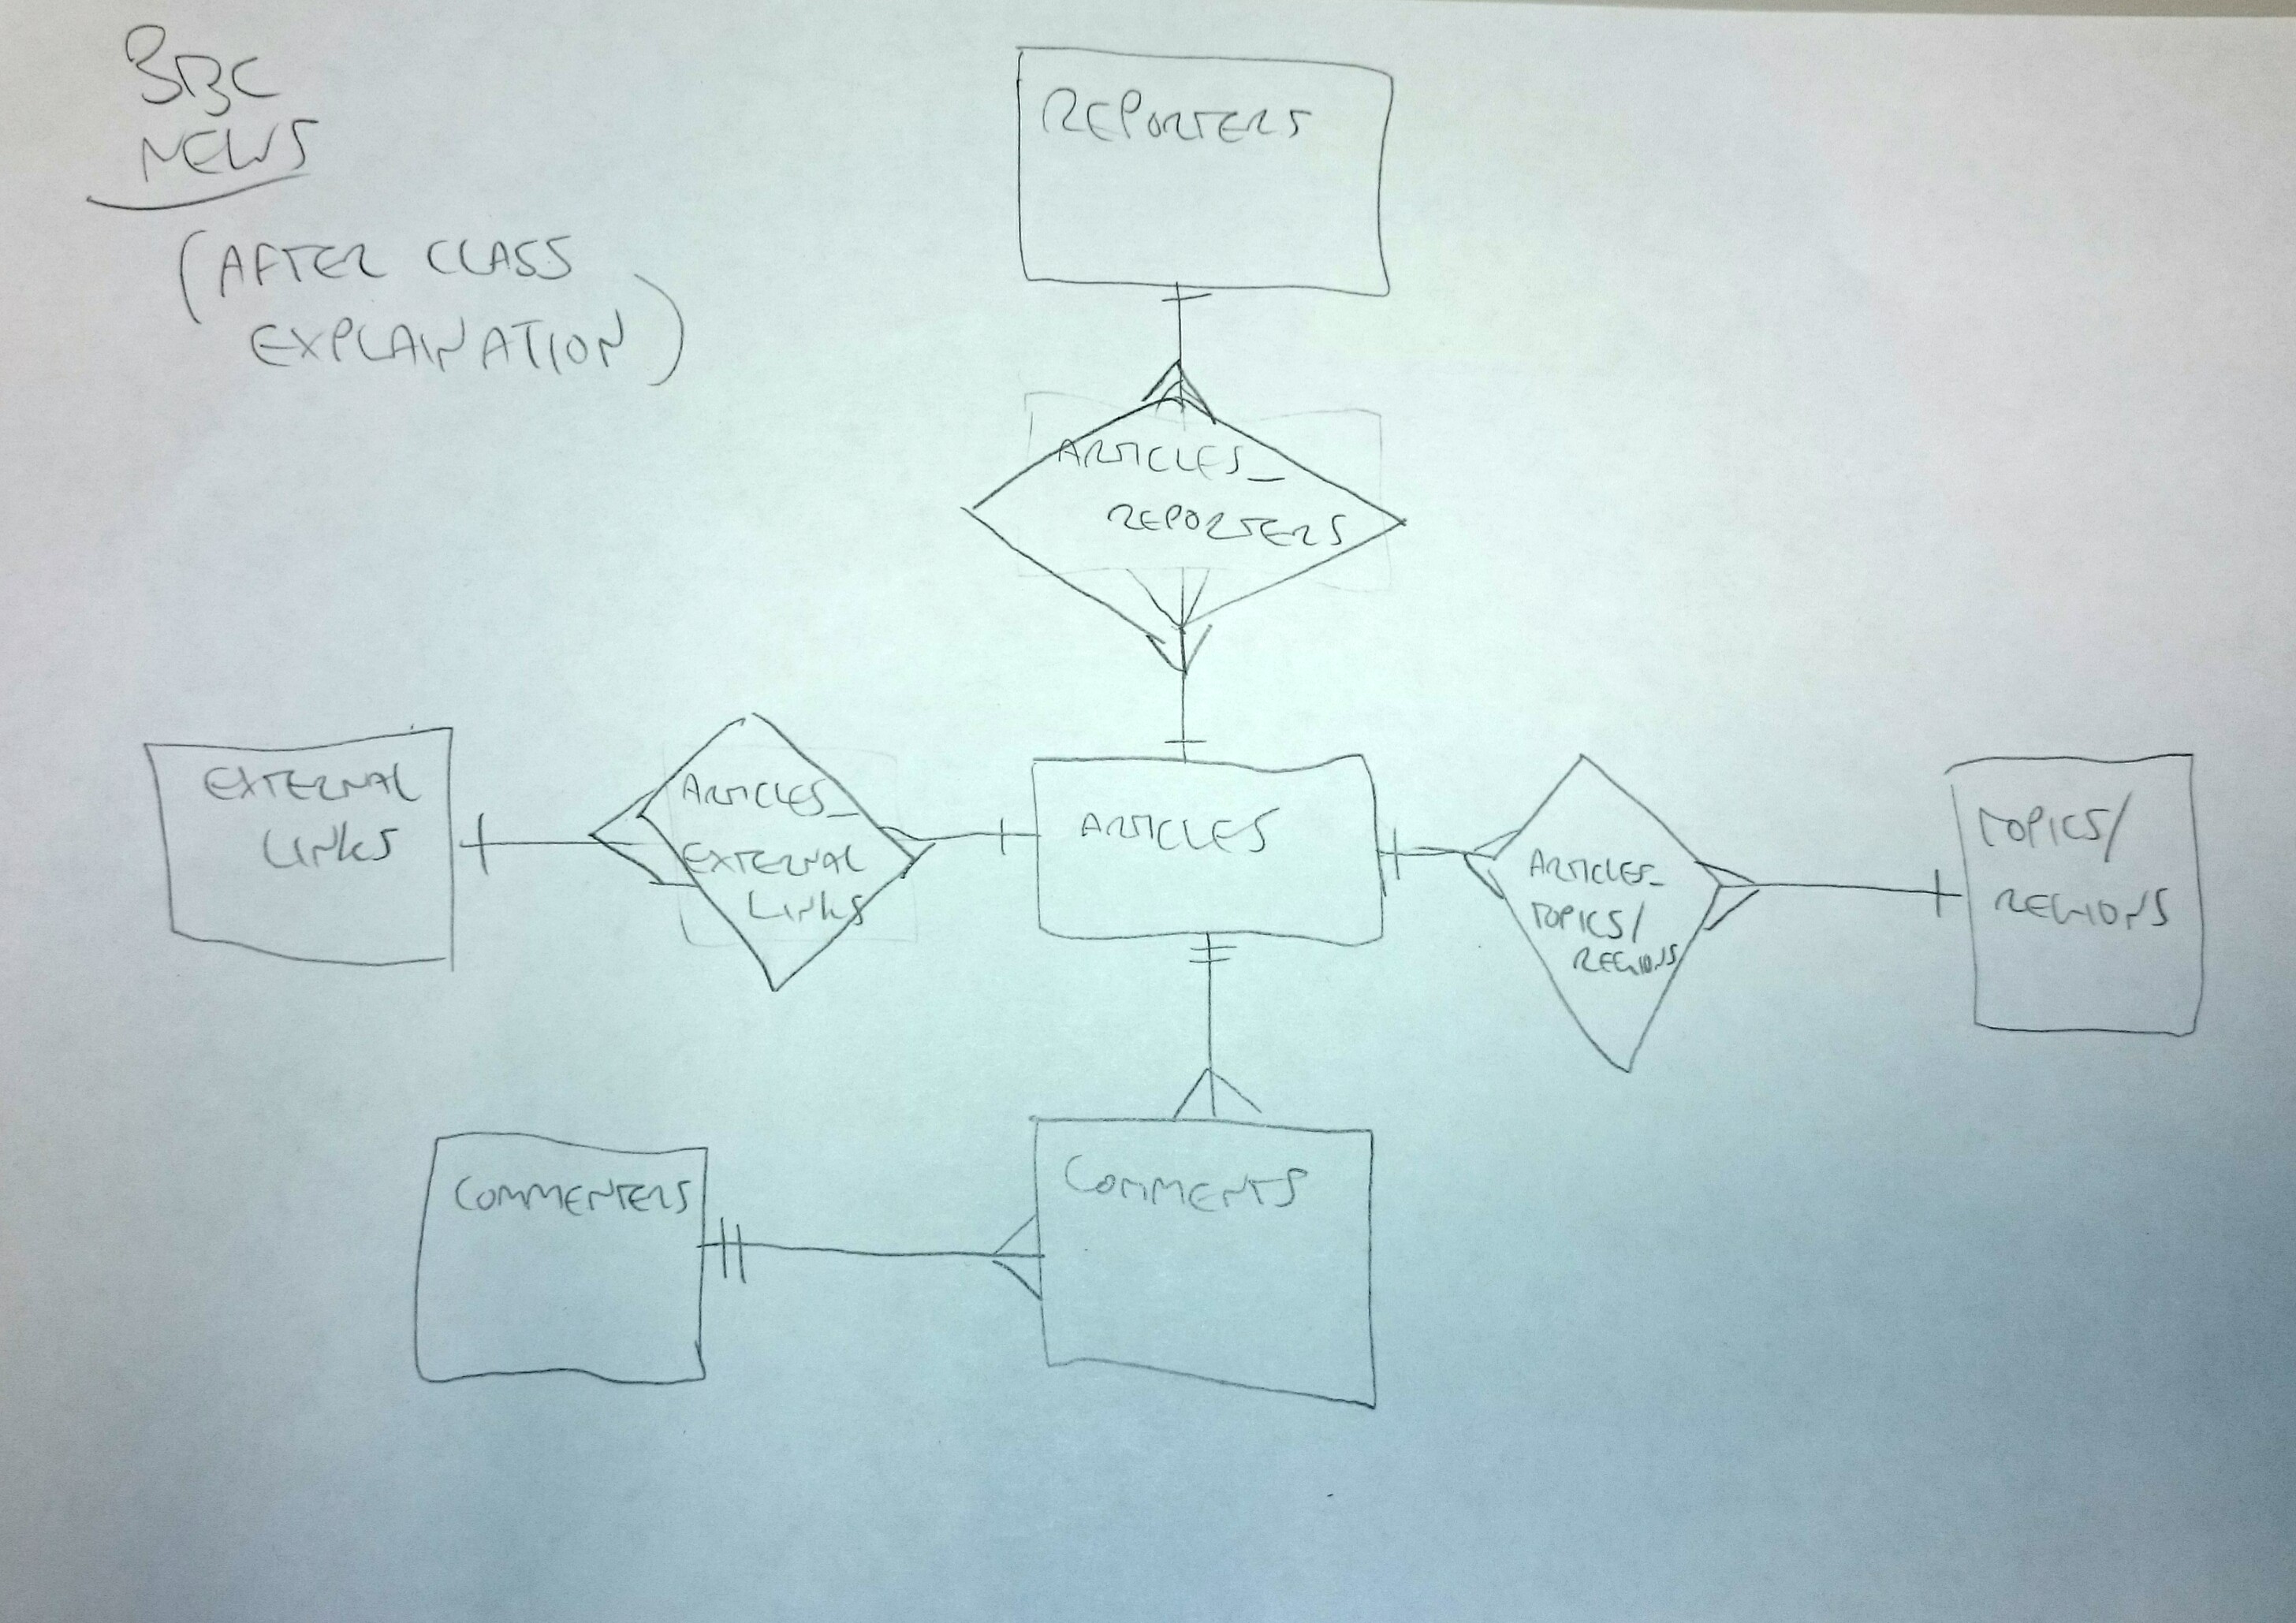 BBC
NEWS
(AFTER CLASS
EXPLAINATION)
REPORTERS
ARTICLES_
REPORTERS
EXTERNAL
LINKS
ARTICLES_
EXTERNAL
LINKS
ARTICLES
ARTICLES_
TOPICS/
REGIONS
TOPICS/
REGIONS
COMMENTERS
COMMENTS